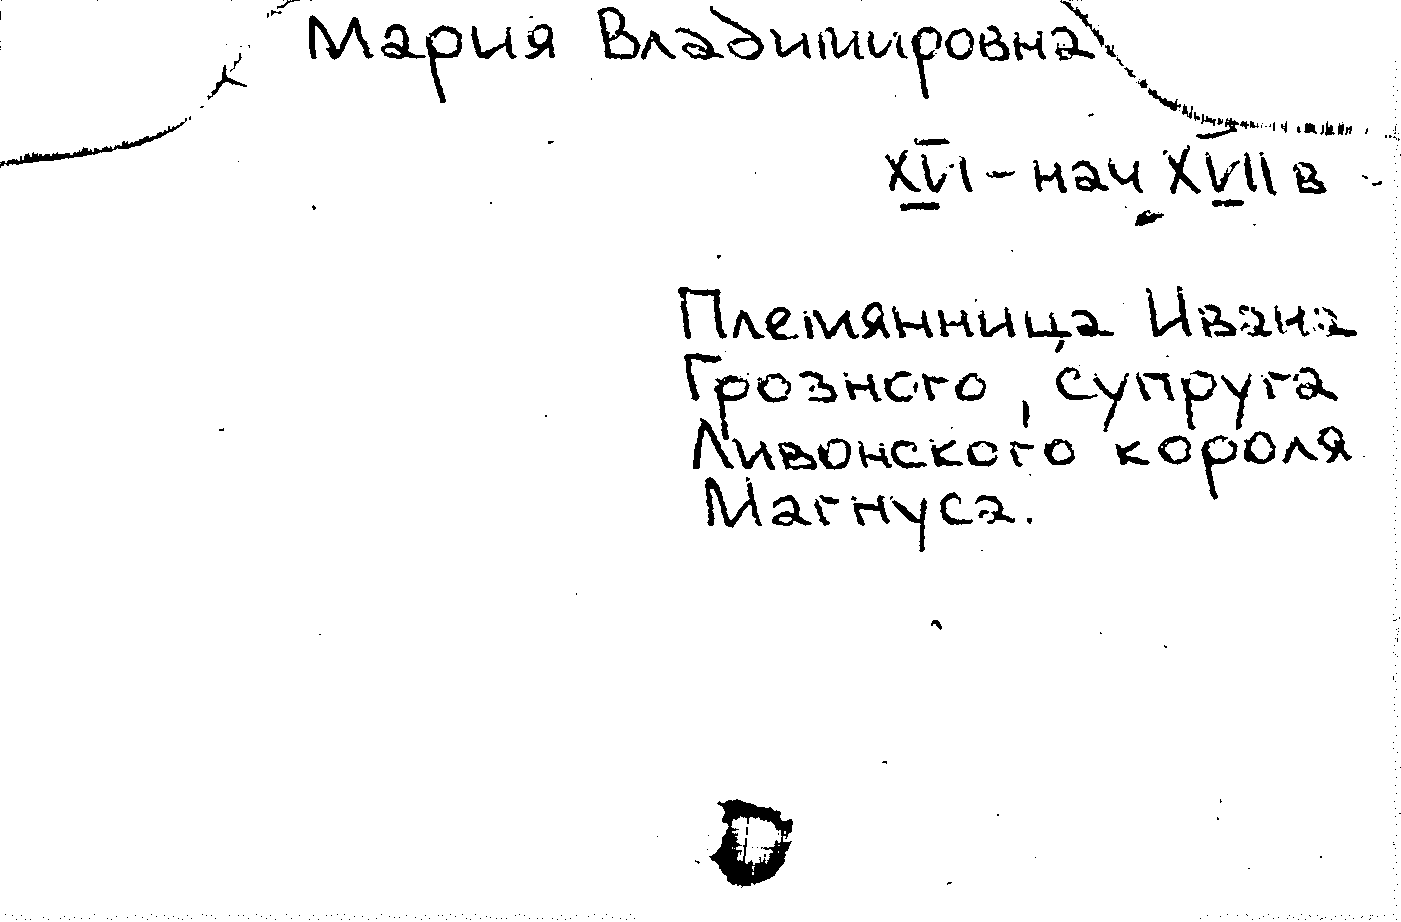 Мария Владимировна
XVI - нач XVII в
Племянница Ивана
Грозного, супруга
Ливонского короля
Магнуса.